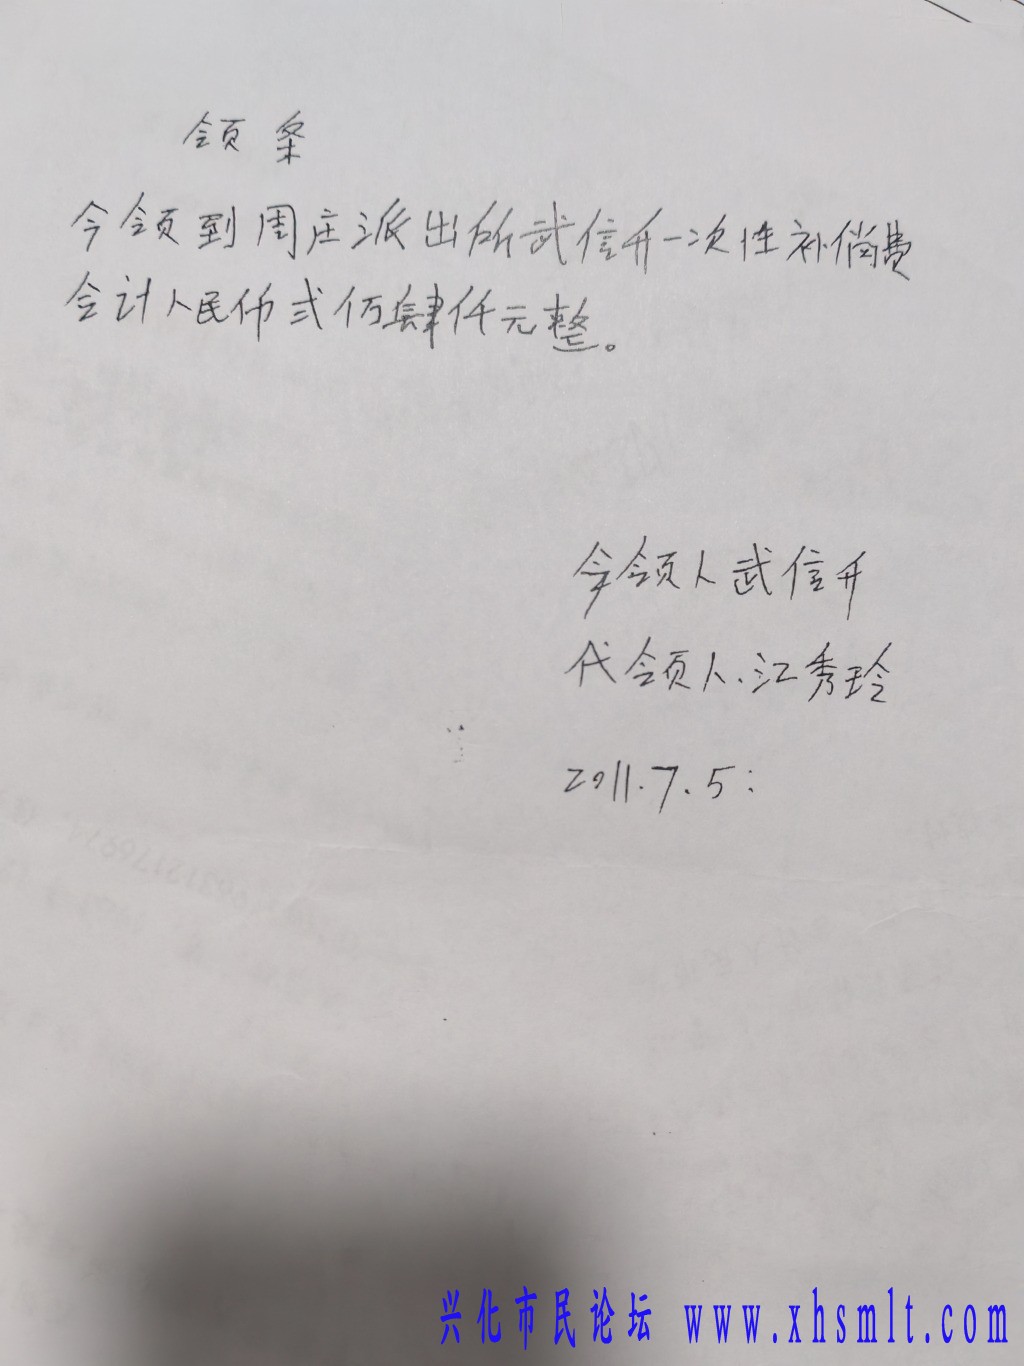 领条
今领到周庄派出所武信开一次性补偿费
合计人民币弍仟肆仟元整。
今领人武信开
代领人.江秀玲
2011.7.5:
兴化市民论坛 www.xhsmlt.com